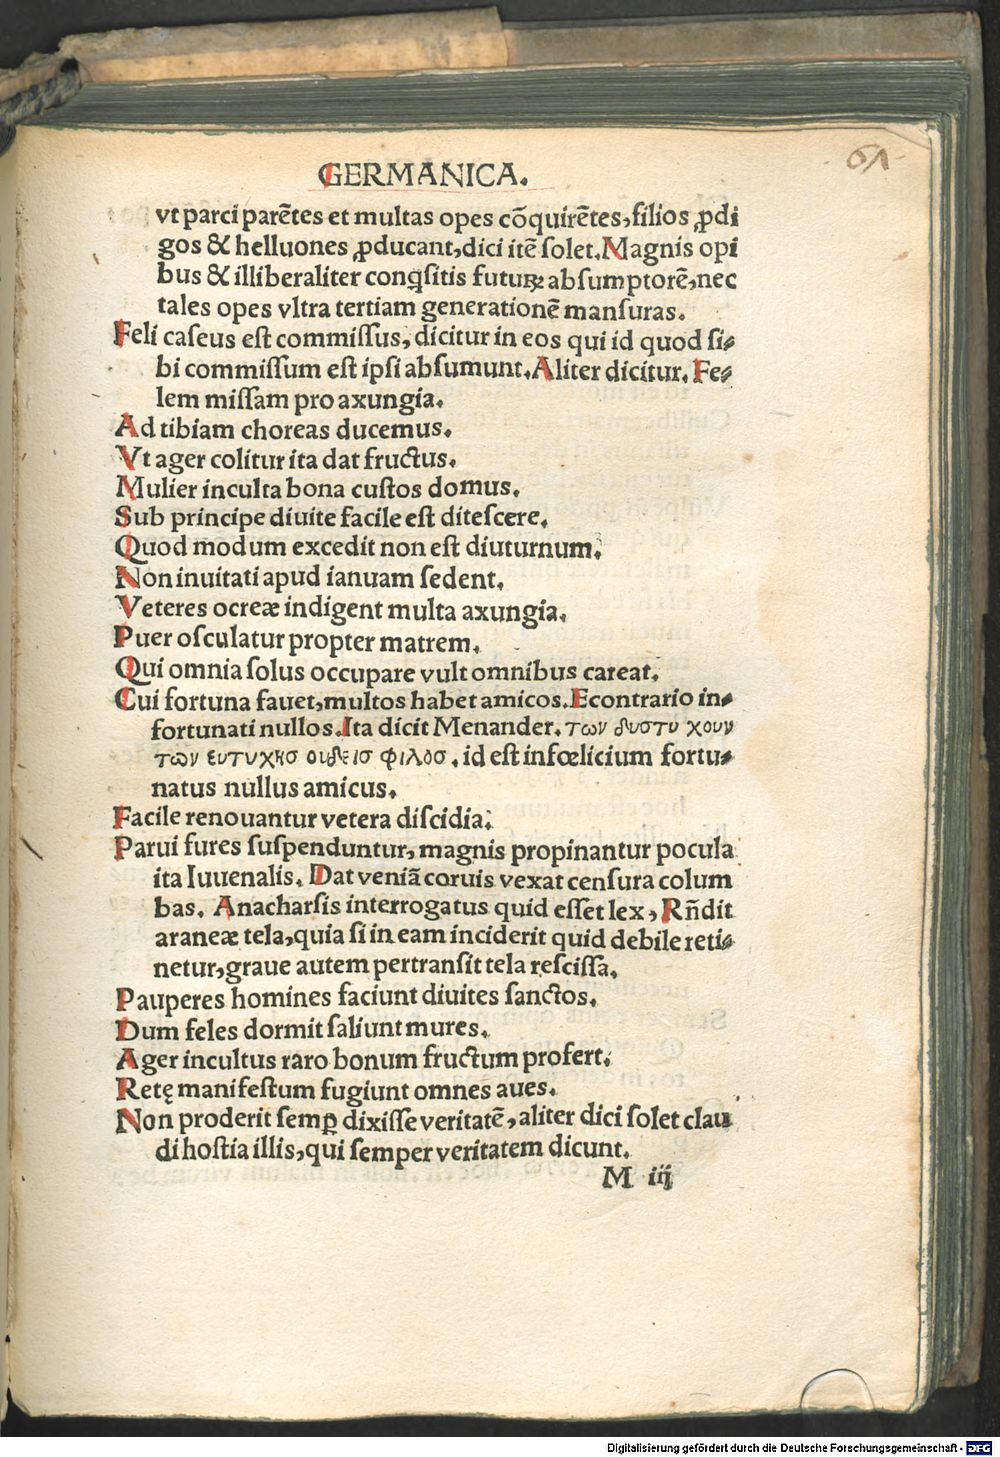 61
GERMANICA.
vt parci parẽtes et multas opes cõquirẽtes, filios ꝓdi
gos & helluones ꝓducant, dici itẽ ſolet. Magnis opi
bus & illiberaliter conq̃ſitis futuꝝ abſumptorẽ, nec
tales opes vltra tertiam generationẽ manſuras.
Feli caſeus eſt commiſſus, dicitur in eos qui id quod ſi⸗
bi commiſſum eſt ipſi abſumunt. Aliter dicitur. Fe⸗
lem miſſam pro axungia.
Ad tibiam choreas ducemus.
Vt ager colitur ita dat fructus.
Mulier inculta bona cuſtos domus.
Sub principe diuite facile eſt diteſcere.
Quod modum excedit non eſt diuturnum.
Non inuitati apud ianuam ſedent.
Veteres ocreæ indigent multa axungia.
Puer oſculatur propter matrem.
Qui omnia ſolus occupare vult omnibus careat.
Cui fortuna fauet, multos habet amicos. Econtrario in⸗
fortunati nullos. Ita dicit Menander. των δυστυ χουν
των ευτυχησ ουδεισ φιλοσ. id eſt infœlicium fortu⸗
natus nullus amicus.
Facile renouantur vetera diſcidia.
Parui fures ſuſpenduntur, magnis propinantur pocula
ita Iuuenalis. Dat veniã coruis vexat cenſura colum
bas. Anacharſis interrogatus quid eſſet lex, Rñdit
araneæ tela, quia ſi in eam inciderit quid debile reti⸗
netur, graue autem pertranſit tela reſciſſa.
Pauperes homines faciunt diuites ſanctos.
Dum feles dormit ſaliunt mures.
Ager incultus raro bonum fructum profert.
Retę manifeſtum fugiunt omnes aues.
Non proderit ſemꝑ dixiſſe veritatẽ, aliter dici ſolet clau
di hoſtia illis, qui ſemper veritatem dicunt.
M iij
Digitalisierung gefördert durch die Deutsche Forschungsgemeinschaft - DFG